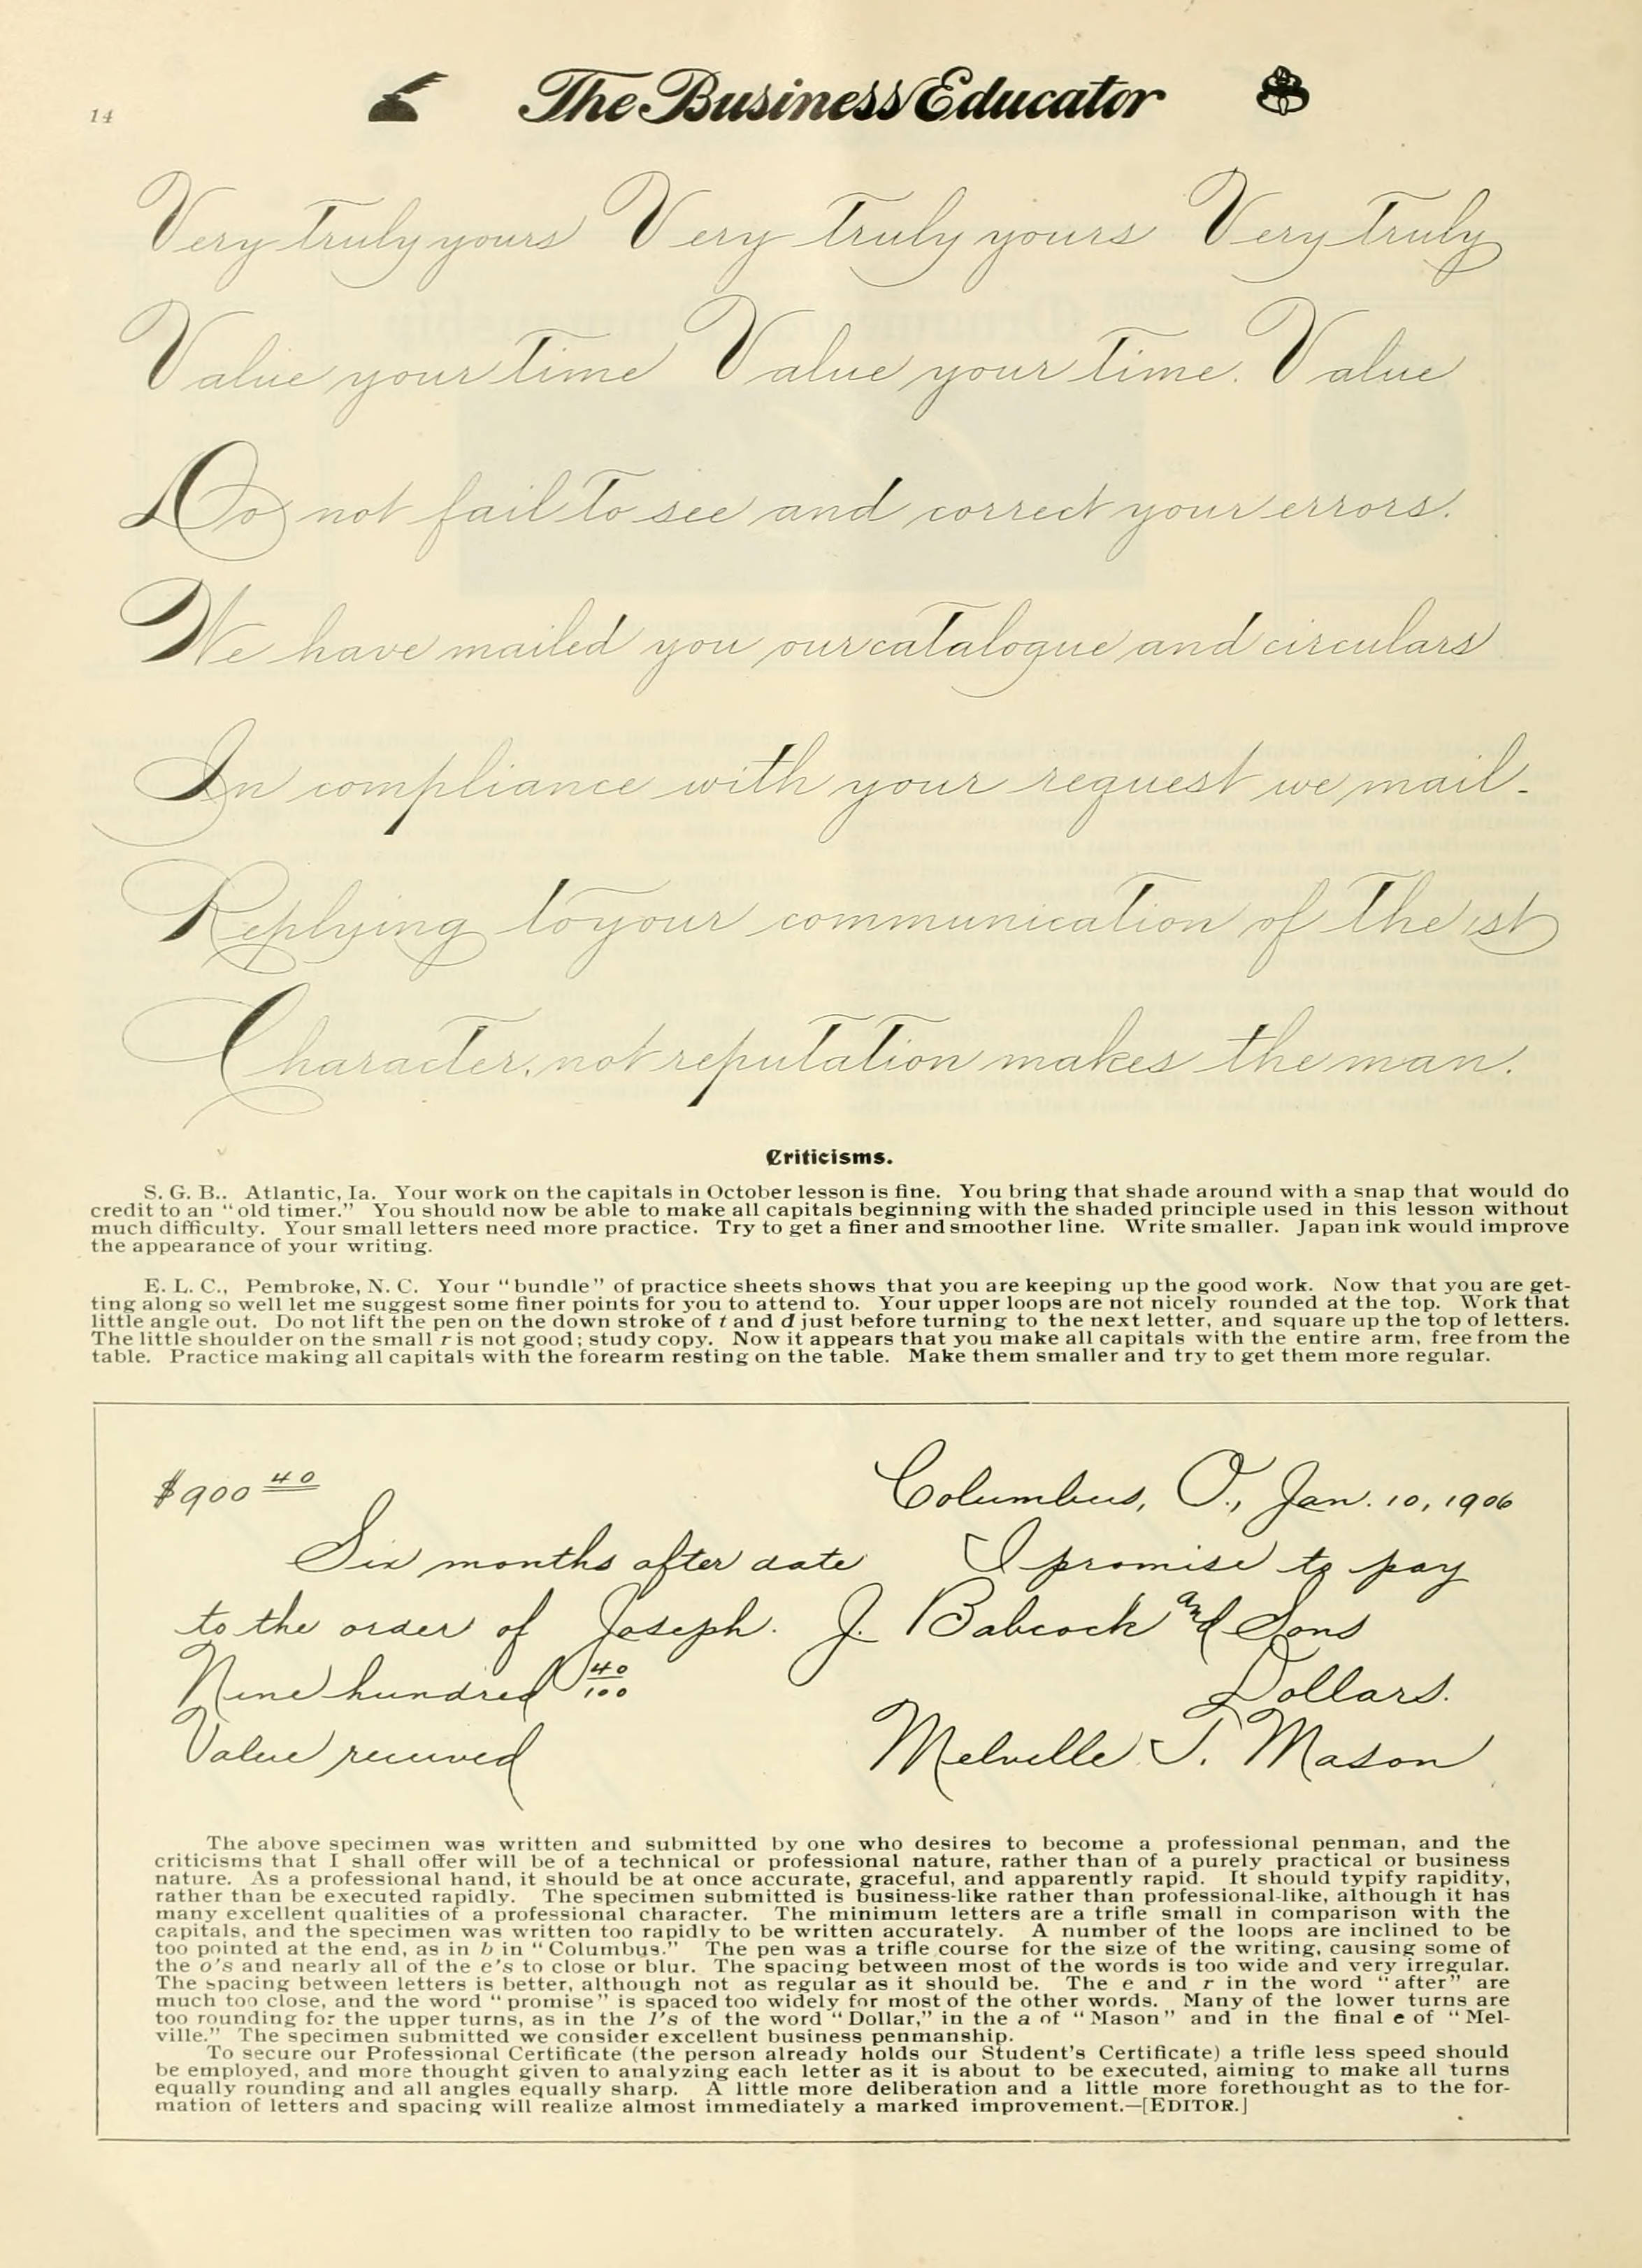 14
The Business Educator
Very truly yours Very truly yours Very truly
Value your time Value your time. Value
Do not fail to see and correct your errors.
We have mailed you our catalogue and circulars
In compliance with your request we mail-
Replying to your communication of the 1st
Character, not reputation makes the man.
Criticisms.
S. G. B.. Atlantic, Ia. Your work on the capitals in October lesson is fine. You bring that shade around with a snap that would do
credit to an "old timer." You should now be able to make all capitals beginning with the shaded principle used in this lesson without
much difficulty. Your small letters need more practice. Try to get a finer and smoother line. Write smaller. Japan ink would improve
the appearance of your writing.
E. L. C., Pembroke, N. C. Your "bundle" of practice sheets shows that you are keeping up the good work. Now that you are get-
ting along so well let me suggest some finer points for you to attend to. Your upper loops are not nicely rounded at the top. Work that
little angle out. Do not lift the pen on the down stroke of t and d just before turning to the next letter, and square up the top of letters.
The little shoulder on the small r is not good; study copy. Now it appears that you make all capitals with the entire arm, free from the
table. Practice making all capitals with the forearm resting on the table. Make them smaller and try to get them more regular.
$900 40 Columbus, O., Jan. 10, 1906
Six months after date I promise to pay
to the order of Joseph. J. Babcock and Sons
Nine hundred 40/100 Dollars.
Value received Melville T. Mason
The above specimen was written and submitted by one who desires to become a professional penman, and the
criticisms that I shall offer will be of a technical or professional nature, rather than of a purely practical or business
nature. As a professional hand, it should be at once accurate, graceful, and apparently rapid. It should typify rapidity,
rather than be executed rapidly. The specimen submitted is business-like rather than professional-like, although it has
many excellent qualities of a professional character. The minimum letters are a trifle small in comparison with the
capitals, and the specimen was written too rapidly to be written accurately. A number of the loops are inclined to be
too pointed at the end, as in b in "Columbus." The pen was a trifle course for the size of the writing, causing some of
the o's and nearly all of the e's to close or blur. The spacing between most of the words is too wide and very irregular.
The spacing between letters is better, although not as regular as it should be. The e and r in the word "after" are
much too close, and the word "promise" is spaced too widely for most of the other words. Many of the lower turns are
too rounding for the upper turns, as in the l's of the word "Dollar," in the a of "Mason" and in the final e of "Mel-
ville." The specimen submitted we consider excellent business penmanship.
To secure our Professional Certificate (the person already holds our Student's Certificate) a trifle less speed should
be employed, and more thought given to analyzing each letter as it is about to be executed, aiming to make all turns
equally rounding and all angles equally sharp. A little more deliberation and a little more forethought as to the for-
mation of letters and spacing will realize almost immediately a marked improvement.—[EDITOR.]